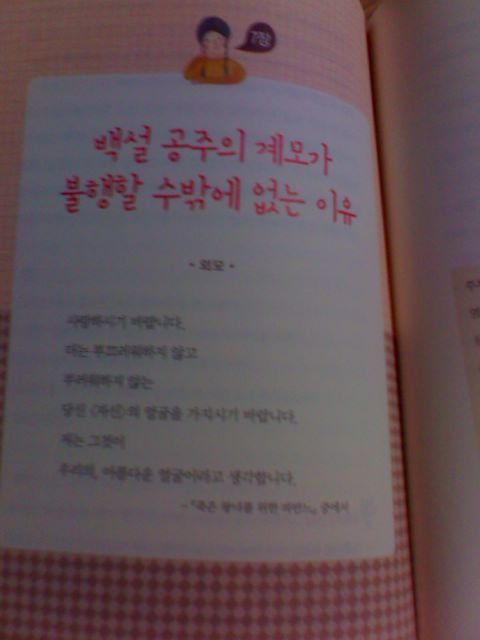 7장
백설 공주의 계모가
불행할 수밖에 없는 이유
• 외모 •
사랑하시기 바랍니다.
더는 부끄러워하지 않고
부러워하지 않는
당신 〈자신〉의 얼굴을 가지시기 바랍니다.
저는 그것이
우리의, 아름다운 얼굴이라고 생각합니다.
– 『죽은 왕녀를 위한 파반느』 중에서